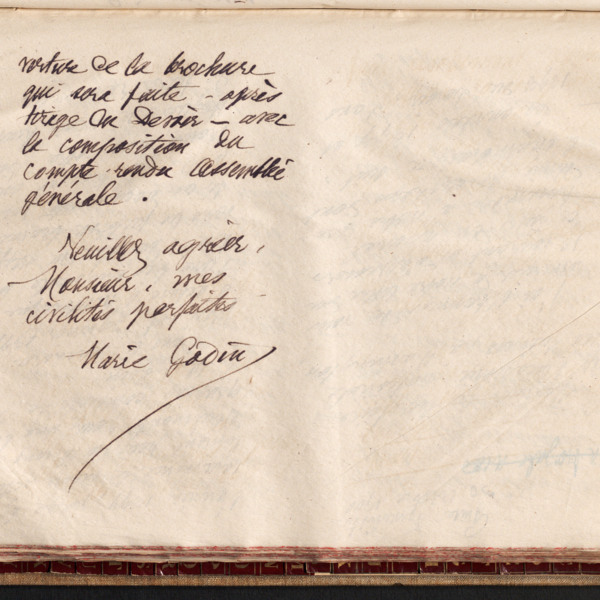 verture de la brochure
qui sera faite - après
tirage du Devoir - avec
la composition du
compte-rendu assemblée
générale.
Veuillez agréer,
Monsieur, mes
civilités parfaites
Marie Godin